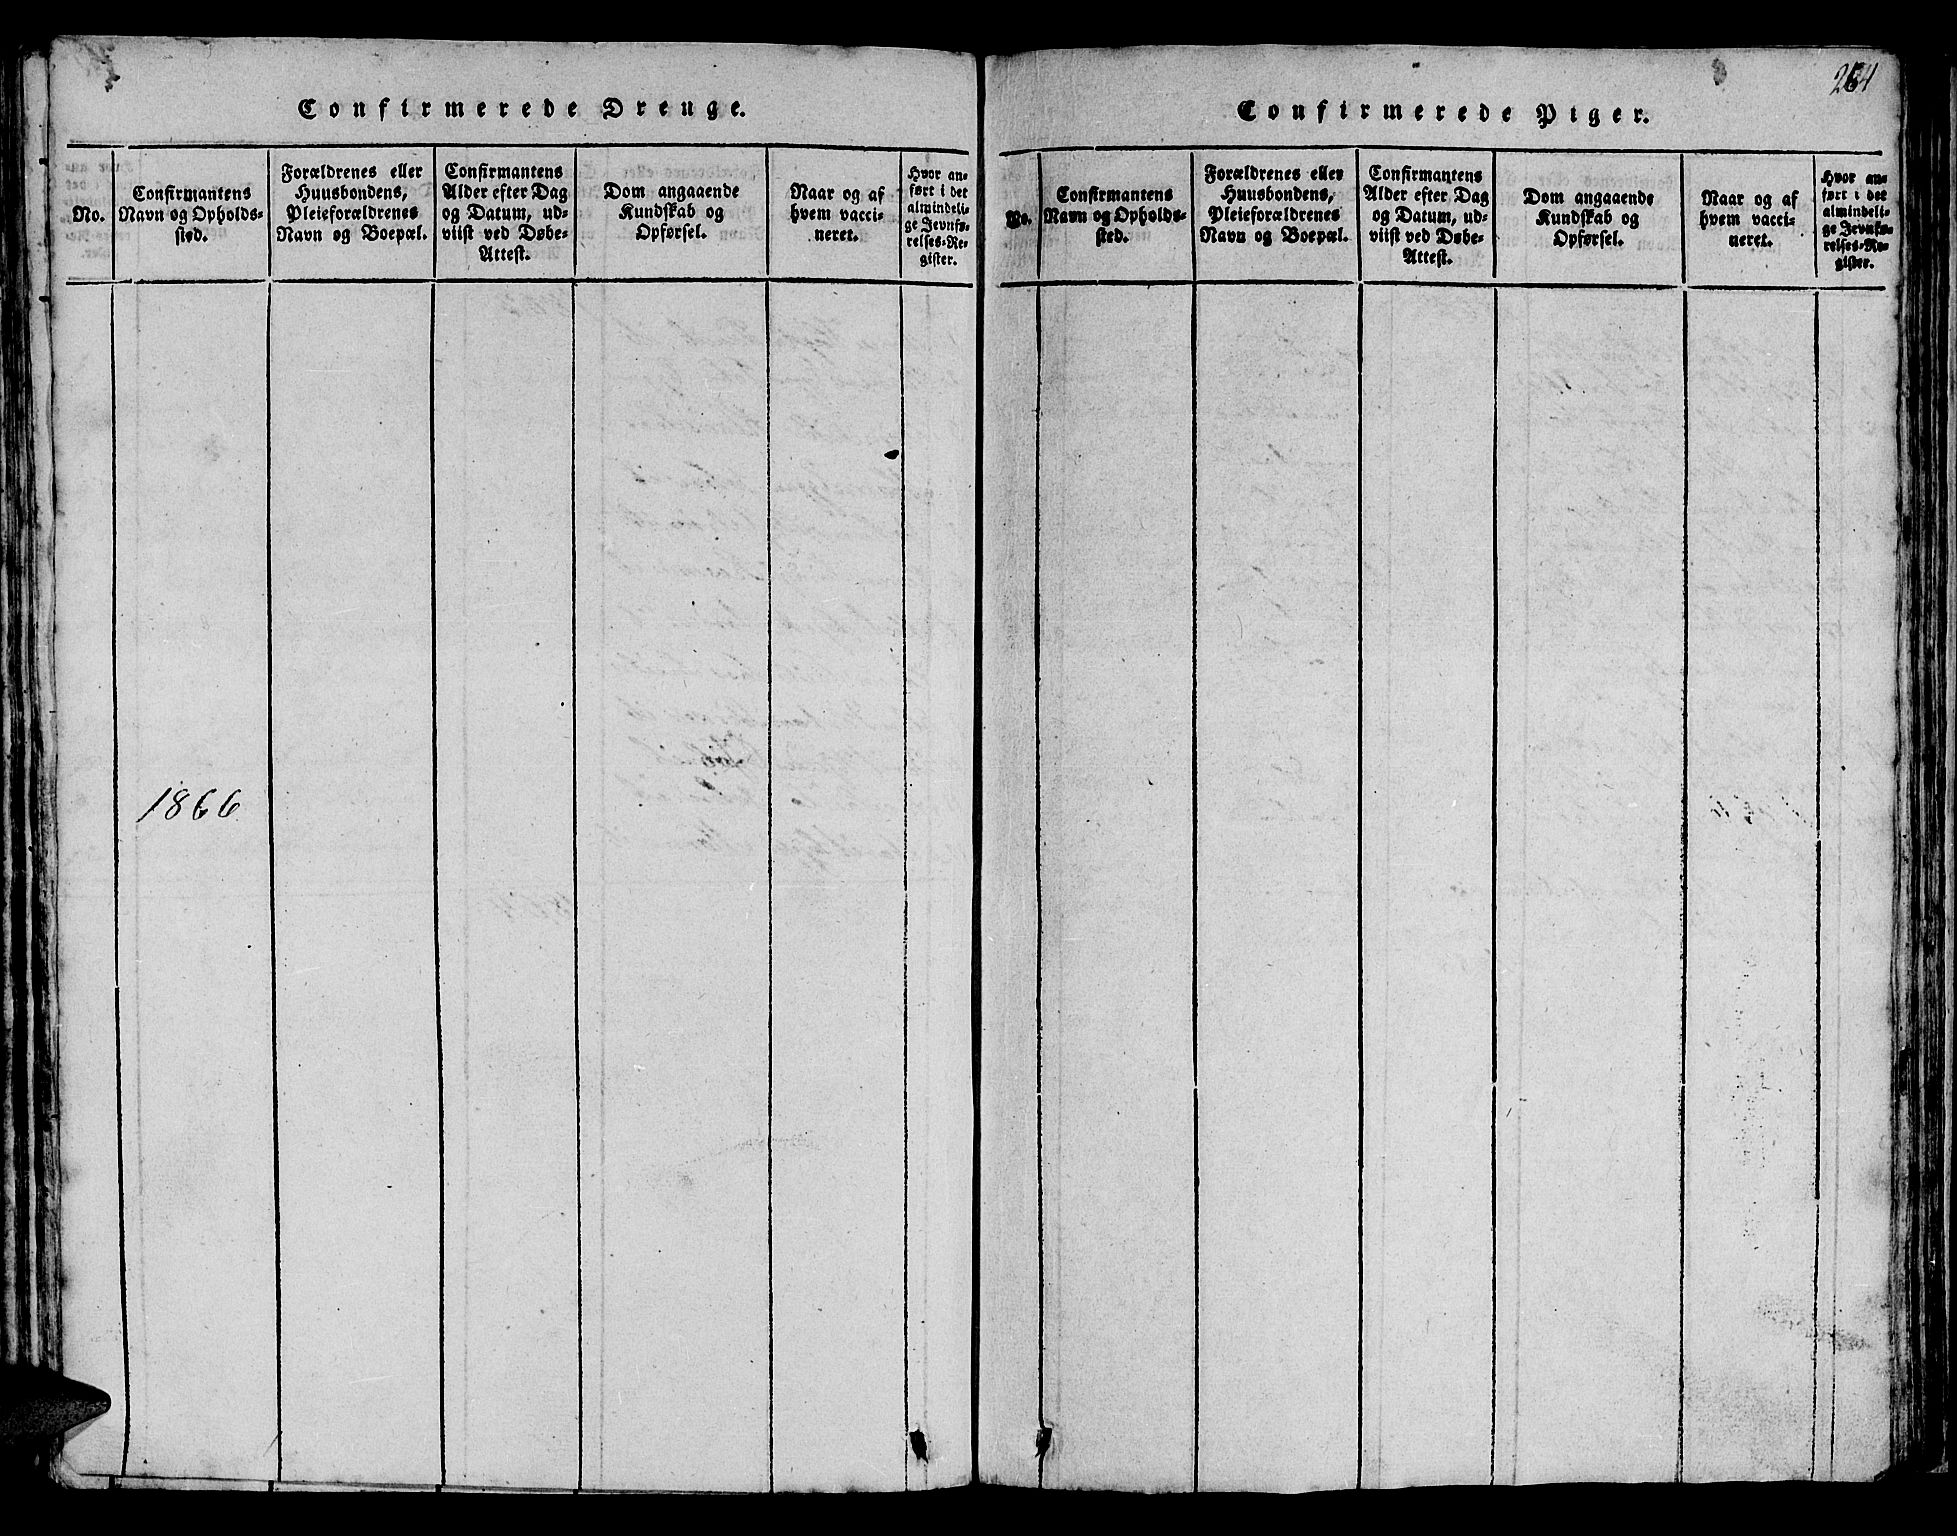 264
Confirmerede Drenge.
No.
Confirmantens
Navn og Opholds-
sted.
Forældrenes eller
Huusbondens,
Pleieforældrenes
Navn og Boepæl.
Confirmantens
Alder efter Dag
og Datum, ud-
viist ved Døbe-
Attest.
Dom angaaende
Kundskab og
Opførsel.
Naar og af
hvem vacci-
neret.
Hvor an-
ført i det
almindeli-
ge Jevnfø-
relses-Re-
gister.
1866
Confirmerede Piger.
No.
Confirmantens
Navn og Opholds-
sted.
Forældrenes eller
Huusbondens,
Pleieforældrenes
Navn og Boepæl.
Confirmantens
Alder efter Dag
og Datum, ud-
viist ved Døbe-
Attest.
Dom angaaende
Kundskab og
Opførsel.
Naar og af
hvem vacci-
neret.
Hvor an-
ført i det
almindeli-
ge Jevnfø-
relses-Re-
gister.